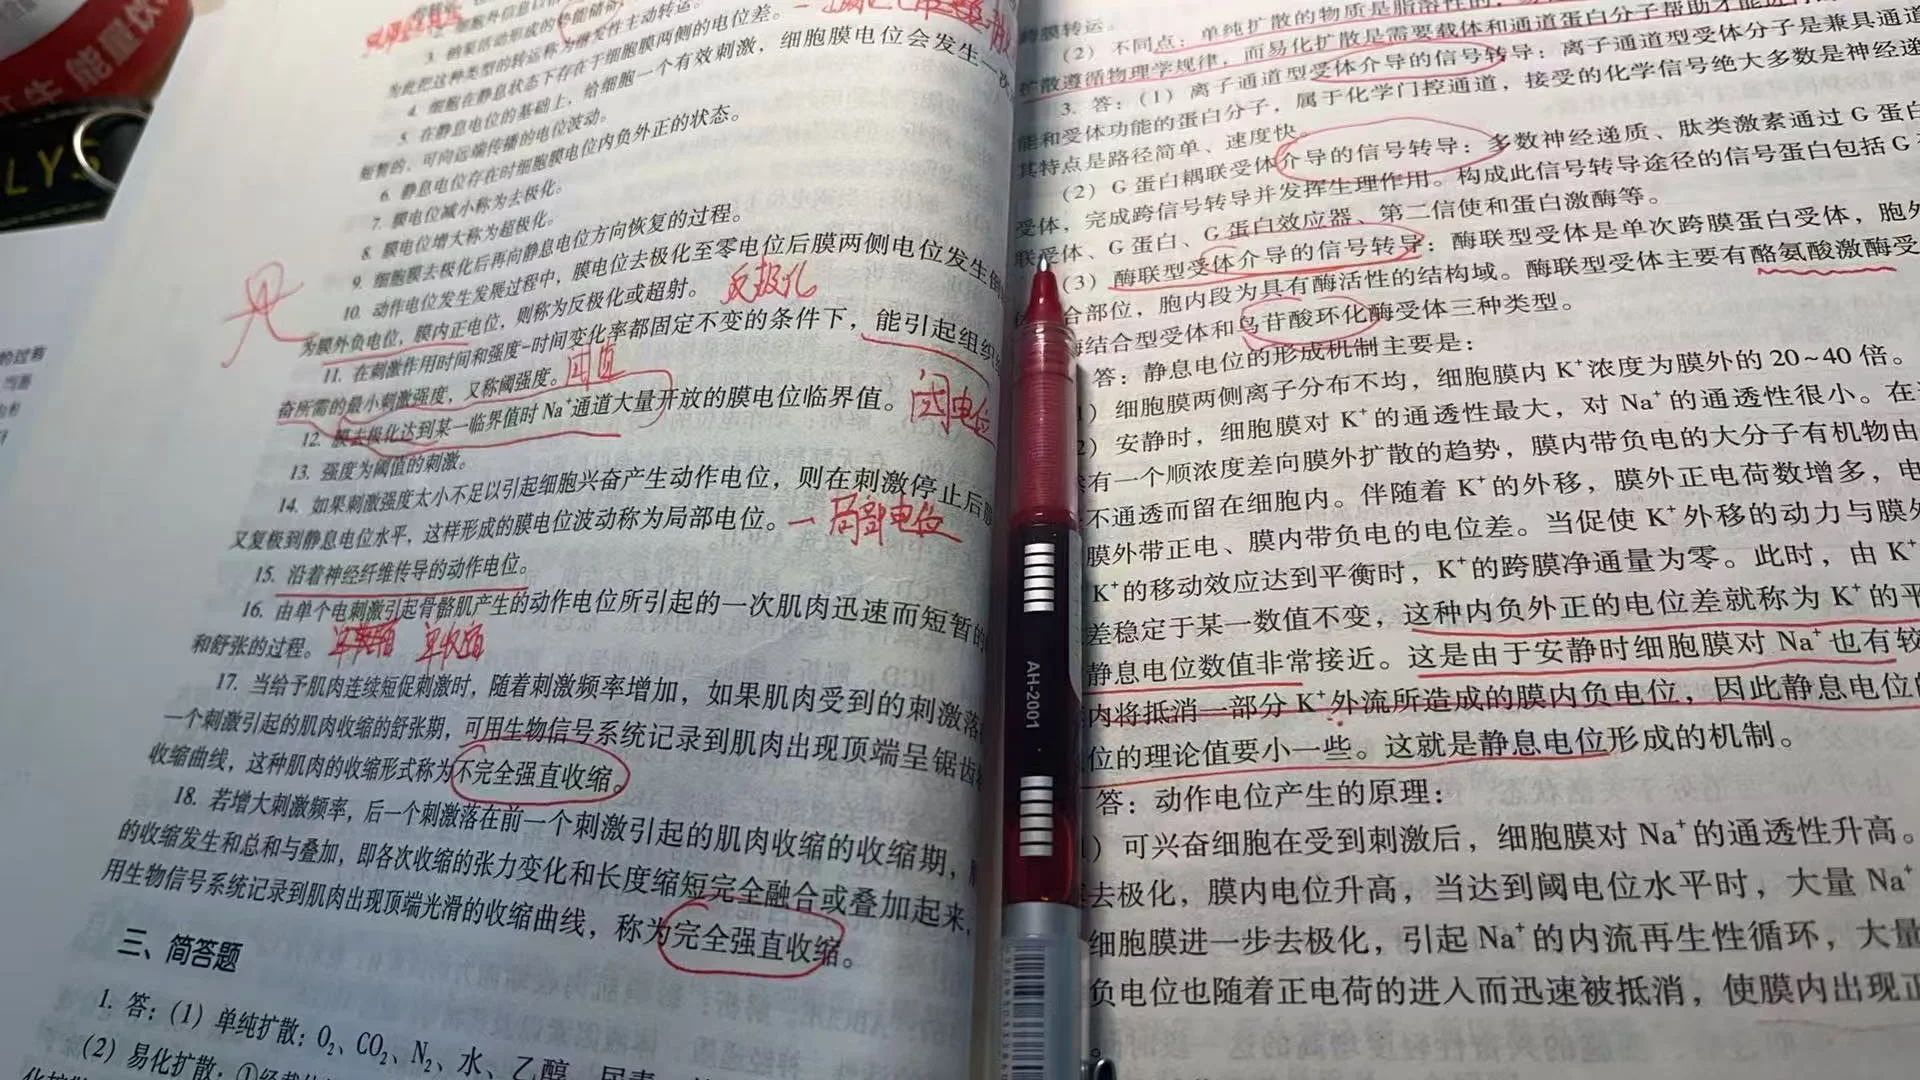 牛 能量饮
LYS
3. 钠泵活动形成的势能储备
为此把这种类型的转运称为继发性主动转运。
4. 细胞在静息状态下存在于细胞膜两侧的电位差。
5. 在静息电位的基础上，给细胞一个有效刺激，细胞膜电位会发生一次
短暂的、可向远端传播的电位波动。
6. 静息电位存在时细胞膜电位内负外正的状态。
7. 膜电位减小称为去极化。
8. 膜电位增大称为超极化。
9. 细胞膜去极化后再向静息电位方向恢复的过程。
10. 动作电位发生发展过程中，膜电位去极化至零电位后膜两侧电位发生倒
为膜外负电位，膜内正电位，则称为反极化或超射。 反极化
11. 在刺激作用时间和强度-时间变化率都固定不变的条件下，能引起组织
奋所需的最小刺激强度，又称阈强度。 阈值
12. 膜去极化达到某一临界值时Na⁺通道大量开放的膜电位临界值。 阈电位
13. 强度为阈值的刺激。
14. 如果刺激强度太小不足以引起细胞兴奋产生动作电位，则在刺激停止后
又复极到静息电位水平，这样形成的膜电位波动称为局部电位。 — 局部电位
15. 沿着神经纤维传导的动作电位。
16. 由单个电刺激引起骨骼肌产生的动作电位所引起的一次肌肉迅速而短暂的
和舒张的过程。 单收缩
17. 当给予肌肉连续短促刺激时，随着刺激频率增加，如果肌肉受到的刺激落
一个刺激引起的肌肉收缩的舒张期，可用生物信号系统记录到肌肉出现顶端呈锯齿
收缩曲线，这种肌肉的收缩形式称为不完全强直收缩。
18. 若增大刺激频率，后一个刺激落在前一个刺激引起的肌肉收缩的收缩期，
的收缩发生和总和与叠加，即各次收缩的张力变化和长度缩短完全融合或叠加起来，
用生物信号系统记录到肌肉出现顶端光滑的收缩曲线，称为完全强直收缩。
三、简答题
1. 答：（1）单纯扩散：O₂、CO₂、N₂、水、乙醇、尿素
（2）易化扩散：①经载体
跨膜转运。
（2）不同点：单纯扩散的物质是脂溶性的，
而易化扩散是需要载体和通道蛋白分子帮助才能
扩散遵循物理学规律，
3. 答：（1）离子通道型受体介导的信号转导：离子通道型受体分子是兼具通道
能和受体功能的蛋白分子，属于化学门控通道，接受的化学信号绝大多数是神经递
其特点是路径简单、速度快。
（2）G蛋白耦联受体介导的信号转导：多数神经递质、肽类激素通过G蛋白
受体，完成跨信号转导并发挥生理作用。构成此信号转导途径的信号蛋白包括G
联受体、G蛋白、G蛋白效应器、第二信使和蛋白激酶等。
（3）酶联型受体介导的信号转导：酶联型受体是单次跨膜蛋白受体，胞外
合部位，胞内段为具有酶活性的结构域。酶联型受体主要有酪氨酸激酶受
结合型受体和鸟苷酸环化酶受体三种类型。
答：静息电位的形成机制主要是：
）细胞膜两侧离子分布不均，细胞膜内K⁺浓度为膜外的20~40倍。
）安静时，细胞膜对K⁺的通透性最大，对Na⁺的通透性很小。在
有一个顺浓度差向膜外扩散的趋势，膜内带负电的大分子有机物由
不通透而留在细胞内。伴随着K⁺的外移，膜外正电荷数增多，电
膜外带正电、膜内带负电的电位差。当促使K⁺外移的动力与膜外
K⁺的移动效应达到平衡时，K⁺的跨膜净通量为零。此时，由K⁺
差稳定于某一数值不变，这种内负外正的电位差就称为K⁺的平
静息电位数值非常接近。这是由于安静时细胞膜对Na⁺也有较
内将抵消一部分K⁺外流所造成的膜内负电位，因此静息电位的
位的理论值要小一些。这就是静息电位形成的机制。
答：动作电位产生的原理：
）可兴奋细胞在受到刺激后，细胞膜对Na⁺的通透性升高。
去极化，膜内电位升高，当达到阈电位水平时，大量Na⁺
细胞膜进一步去极化，引起Na⁺的内流再生性循环，大量
负电位也随着正电荷的进入而迅速被抵消，使膜内出现正
AH-2001